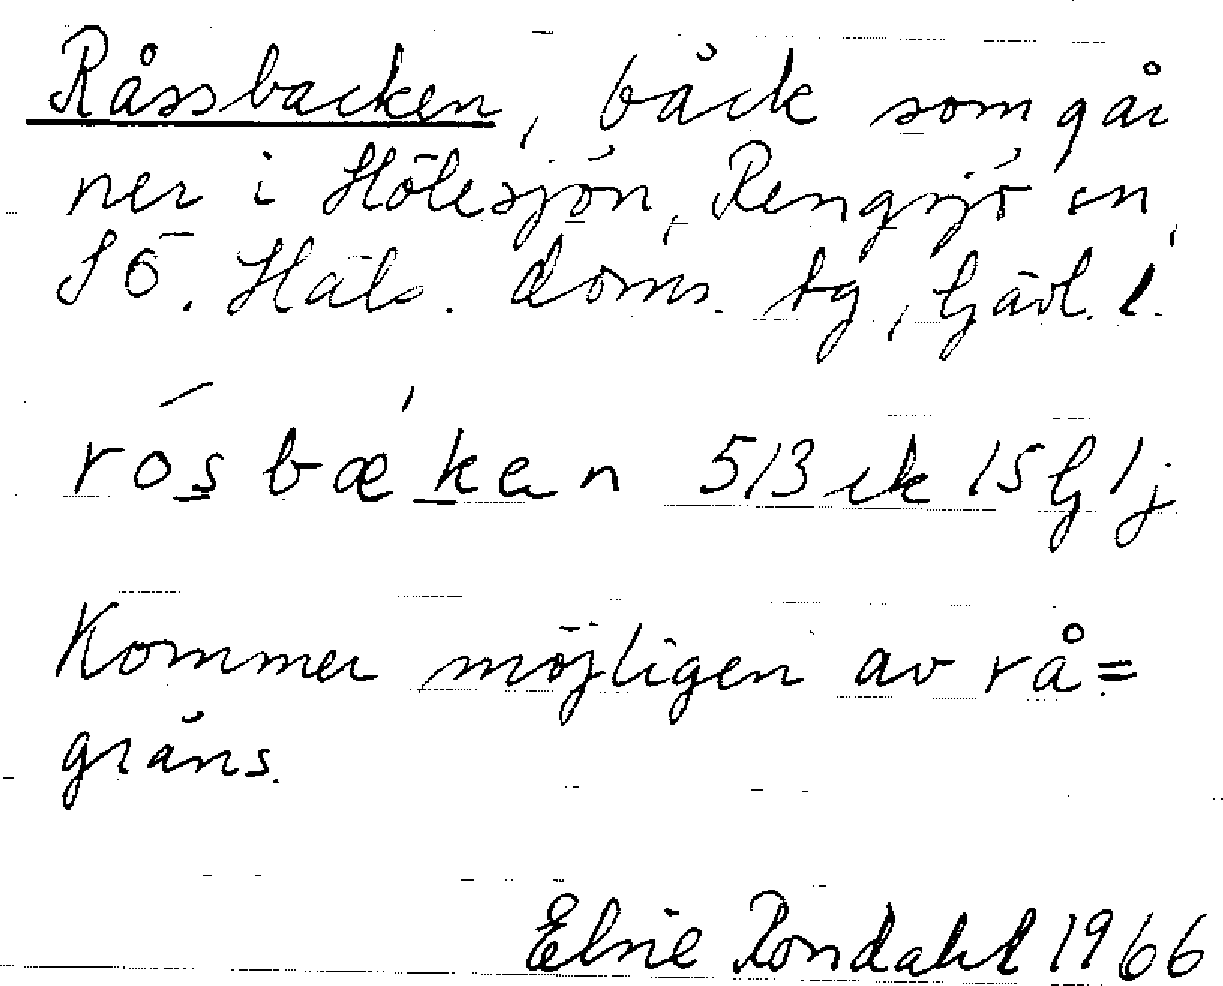 Råssbacken, bäck som går
ner i Hölesjön, Rengsjö sn,
SÖ. Häls. doms. tg, Gävl. l.
rósbæken 513 ek 15 G 1 j
Kommer möjligen av rå=
gräns.
Elsie Rondahl 1966